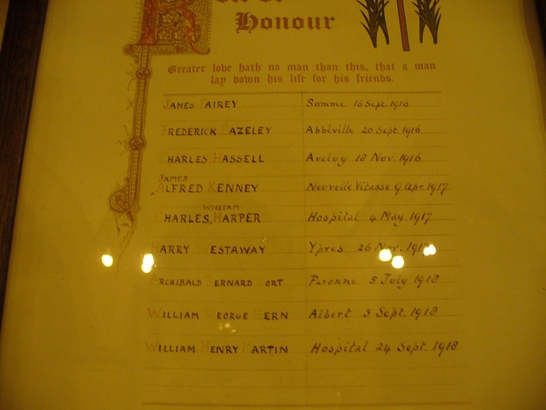 Honour
Greater love hath no man than this, that a man
lay down his life for his friends.
JAMES AIREY Somme 16 Sept. 1916
FREDERICK BAZELEY Abbéville 20 Sept. 1916
CHARLES HASSELL Aveluy 18 Nov. 1916
JAMES
ALFRED KENNEY Neuville Vitasse 9 Apr. 1917
WILLIAM
CHARLES HARPER Hospital 4 May 1917
HARRY WESTAWAY Ypres 26 Nov.
ARCHIBALD BERNARD Peronne 5 July 1918
WILLIAM GEORGE Albert 3 Sept. 1918
WILLIAM HENRY MARTIN Hospital 24 Sept. 1918